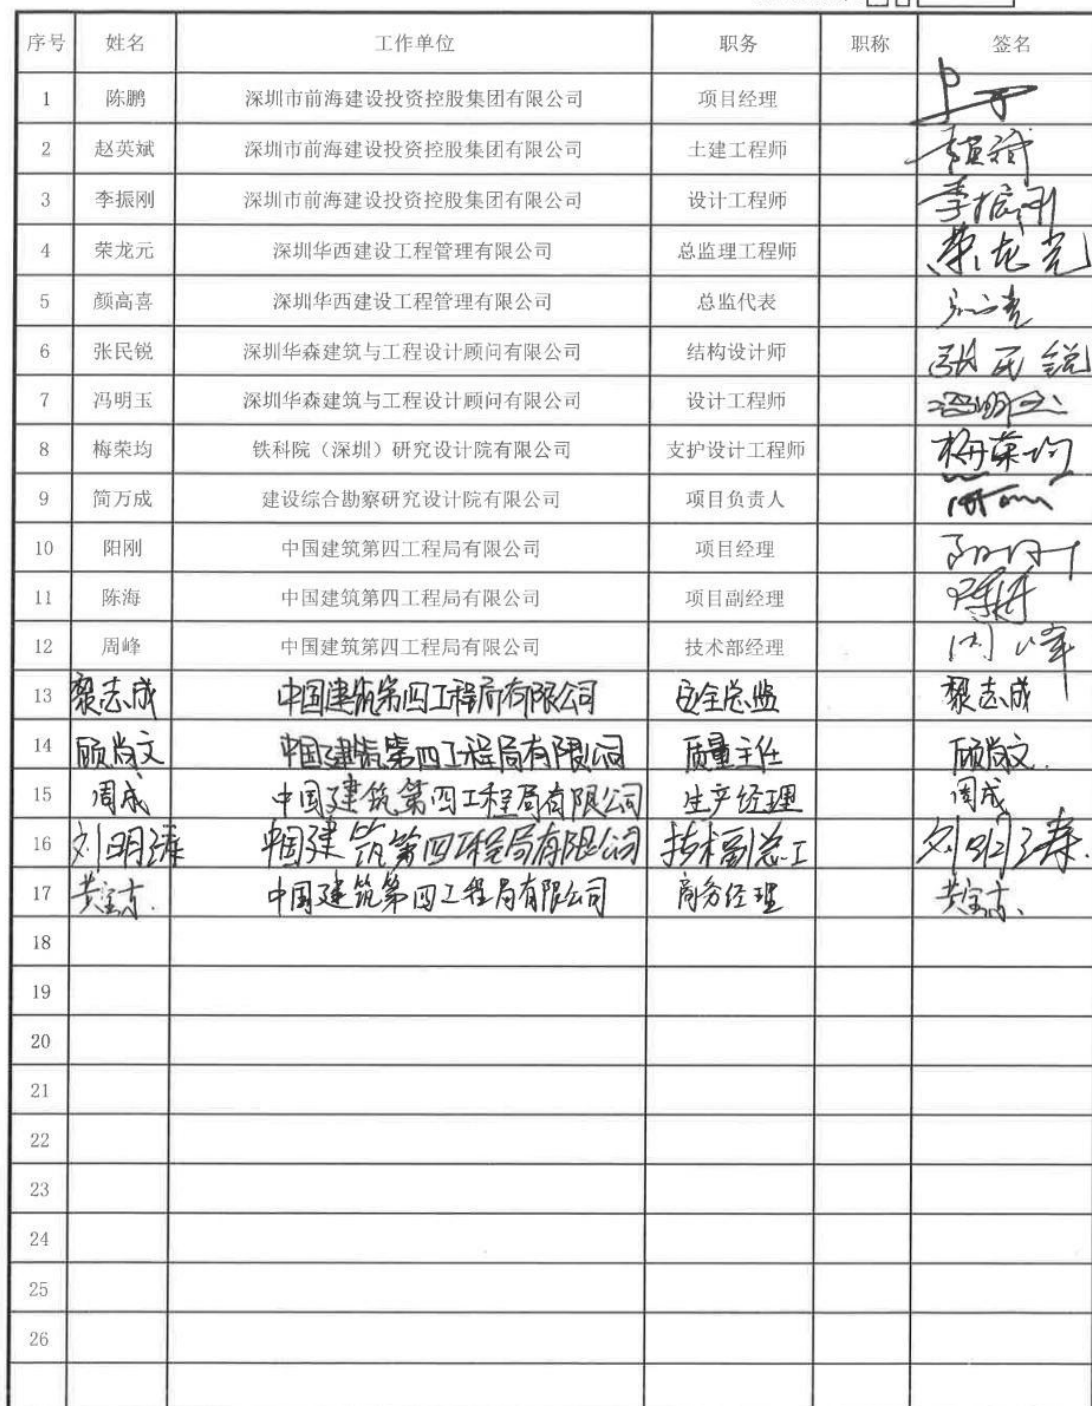 序号 姓名 工作单位 职务 职称 签名
1 陈鹏 深圳市前海建设投资控股集团有限公司 项目经理
2 赵英斌 深圳市前海建设投资控股集团有限公司 土建工程师
3 李振刚 深圳市前海建设投资控股集团有限公司 设计工程师 李振刚
4 荣龙元 深圳华西建设工程管理有限公司 总监理工程师 荣龙元
5 颜高喜 深圳华西建设工程管理有限公司 总监代表
6 张民锐 深圳华森建筑与工程设计顾问有限公司 结构设计师 张民锐
7 冯明玉 深圳华森建筑与工程设计顾问有限公司 设计工程师 冯明玉
8 梅荣均 铁科院（深圳）研究设计院有限公司 支护设计工程师 梅荣均
9 简万成 建设综合勘察研究设计院有限公司 项目负责人
10 阳刚 中国建筑第四工程局有限公司 项目经理 阳刚
11 陈海 中国建筑第四工程局有限公司 项目副经理 陈海
12 周峰 中国建筑第四工程局有限公司 技术部经理 周峰
13 黎志成 中国建筑第四工程局有限公司 安全总监 黎志成
14 顾尚文 中国建筑第四工程局有限公司 质量主任 顾尚文.
15 周成 中国建筑第四工程局有限公司 生产经理 周成
16 刘明 中国建筑第四工程局有限公司 技术副总工 刘明
17 中国建筑第四工程局有限公司 商务经理
18
19
20
21
22
23
24
25
26